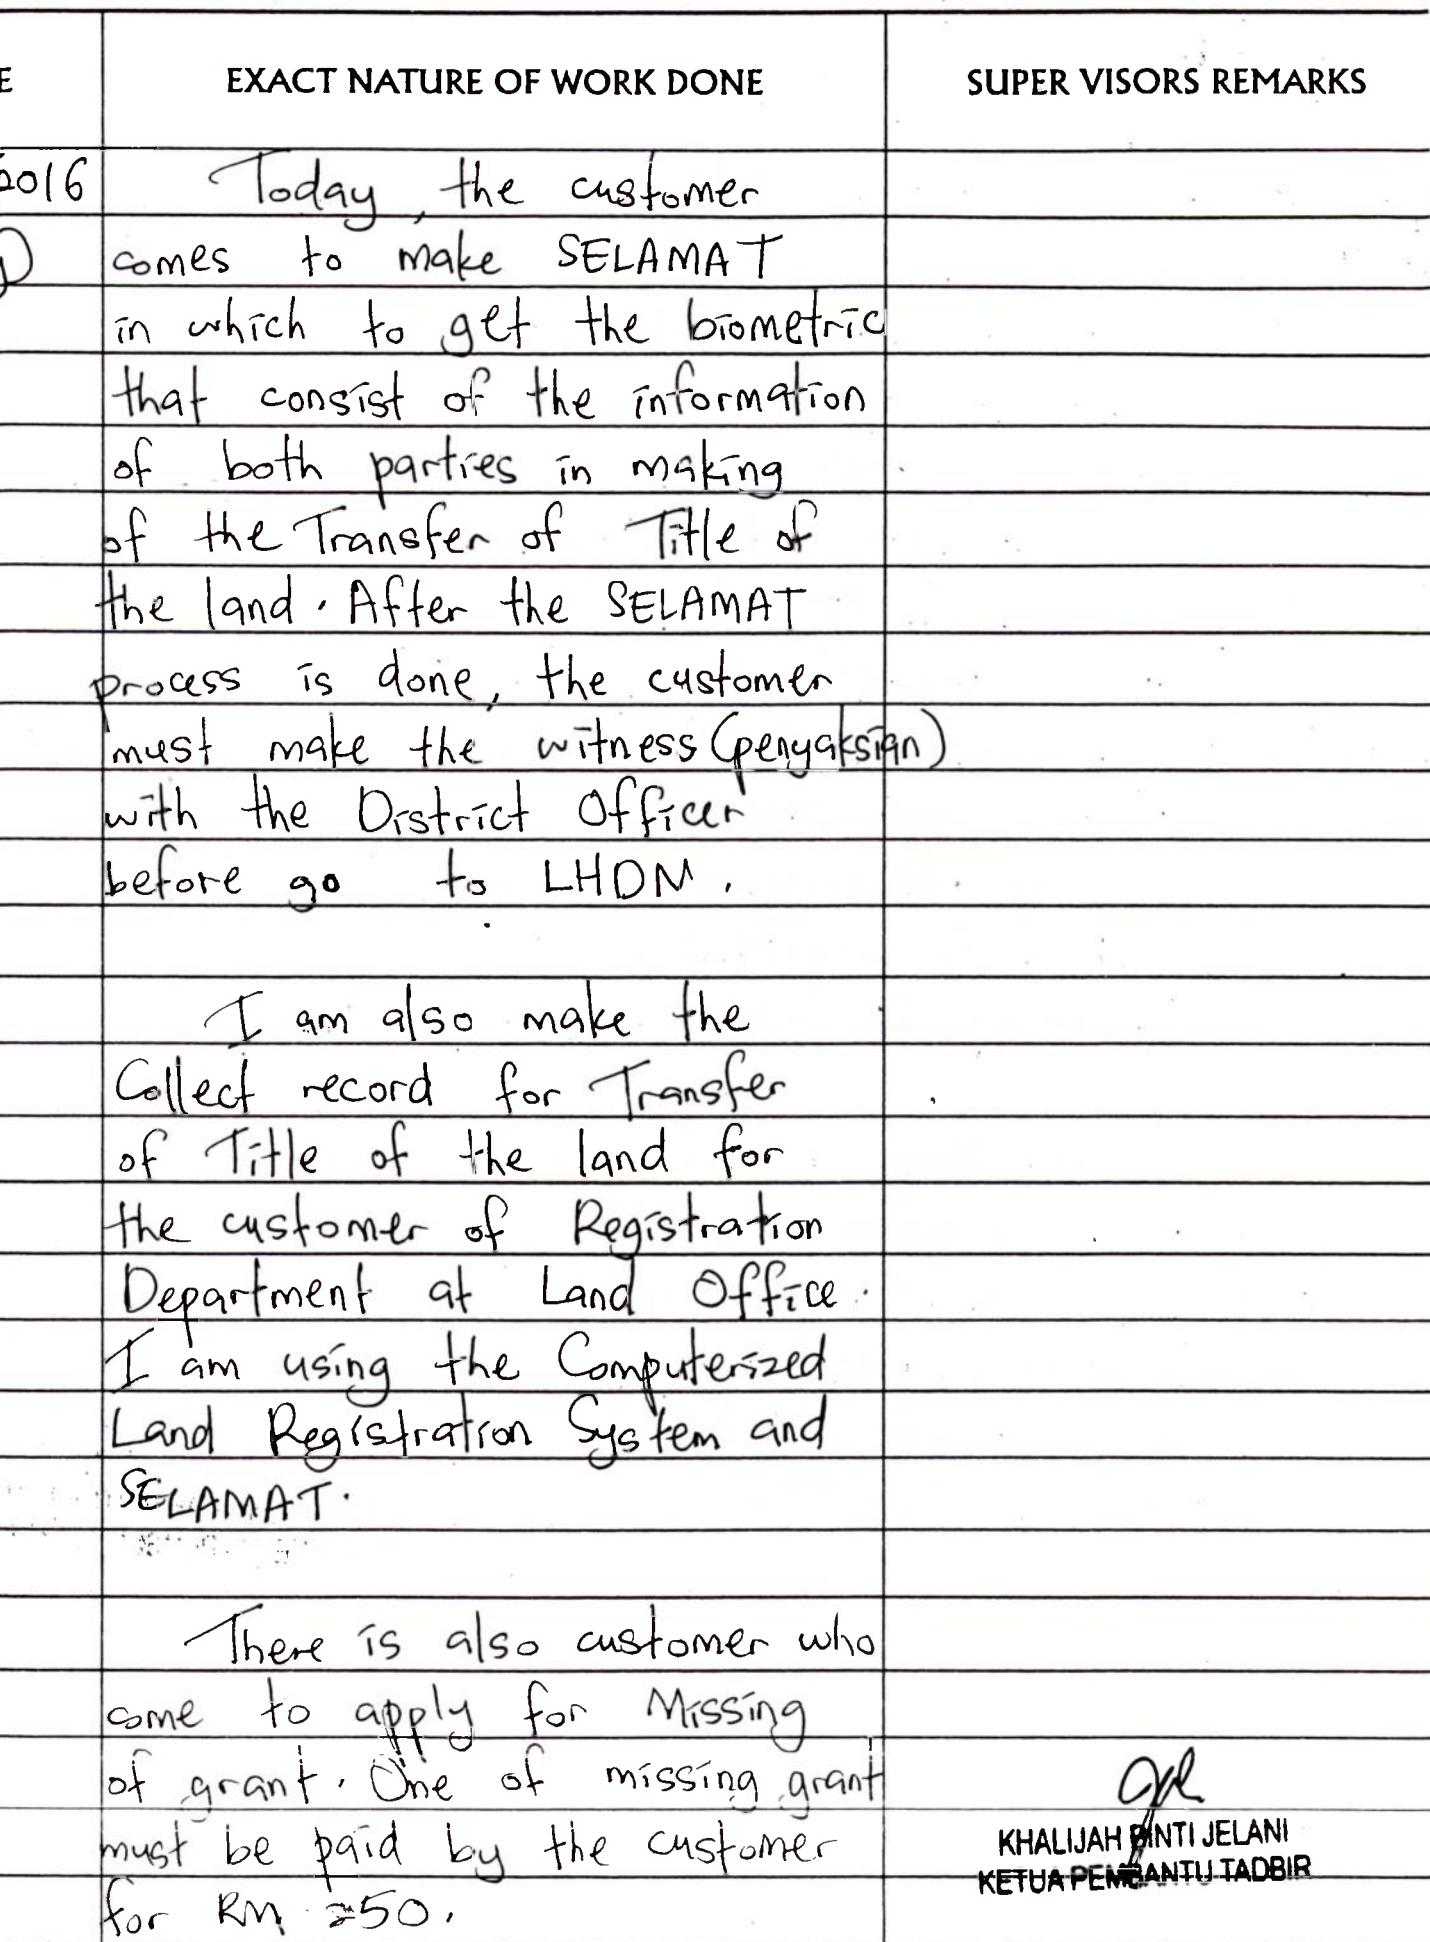 E
EXACT NATURE OF WORK DONE
SUPER VISORS REMARKS
2016
Today, the customer
comes to make SELAMAT
in which to get the biometric
that consist of the information
of both parties in making
of the Transfer of Title of
the land. After the SELAMAT
process is done, the customer
must make the witness (penyaksian)
with the District Officer
before go to LHDN.
I am also make the
Collect record for Transfer
of Title of the land for
the customer of Registration
Department at Land Office.
I am using the Computerized
Land Registration System and
SELAMAT.
There is also customer who
come to apply for Missing
of grant. One of missing grant
must be paid by the customer
for RM 250.
KHALIJAH BINTI JELANI
KETUA PEMBANTU TADBIR